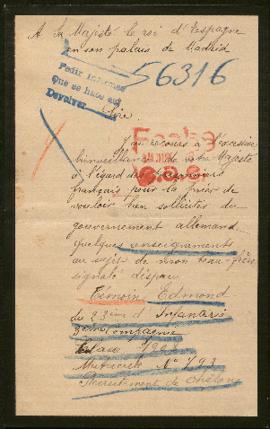 A Sa Majesté le roi d'Espagne
en son palais de Madrid
Pedir informes
Que se hace así
Devolver
56316
Sire
J'ai recours à l'excessive
bienveillance de votre Majesté
à l'égard des
français pour la prier de
vouloir bien solliciter du
gouvernement allemand
quelques renseignements
au sujet de mon beau-frère
signalé disparu
Témoin Edmond
du 23ème d'Infanterie
Compagnie
Classe
Matricule N° 793
Recrutement de Châlons